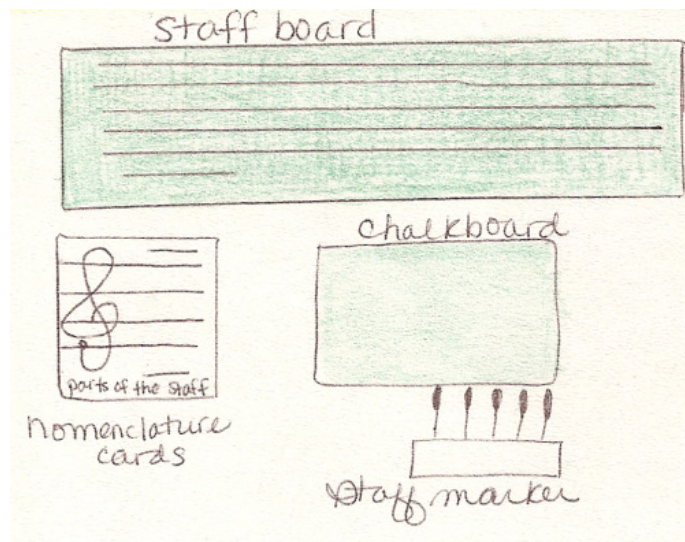 Staff board
chalkboard
parts of the staff
nomenclature
cards
Staff marker